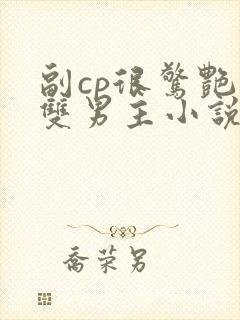 副cp很驚艷
雙男主小說
喬荣另